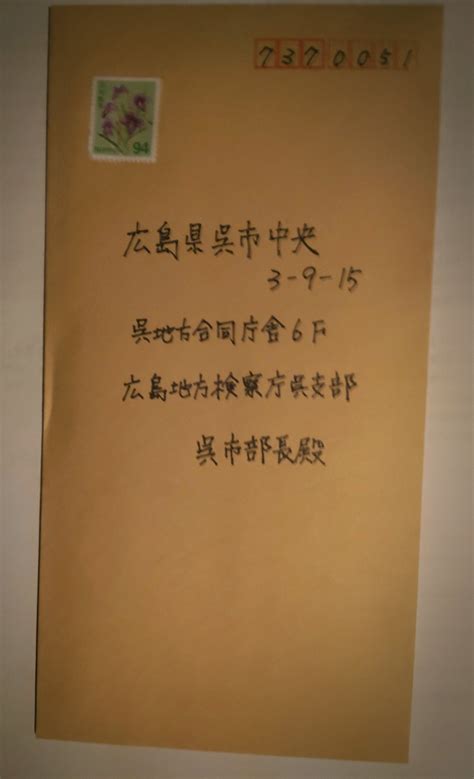 7370051
94
広島県呉市中央
3-9-15
呉地方合同庁舎6F
広島地方検察庁呉支部
呉市部長殿